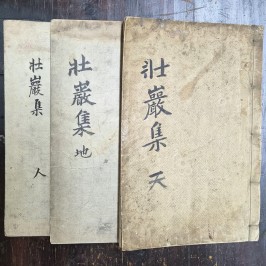 壯巖集 天
壯巖集 地
壯巖集 人